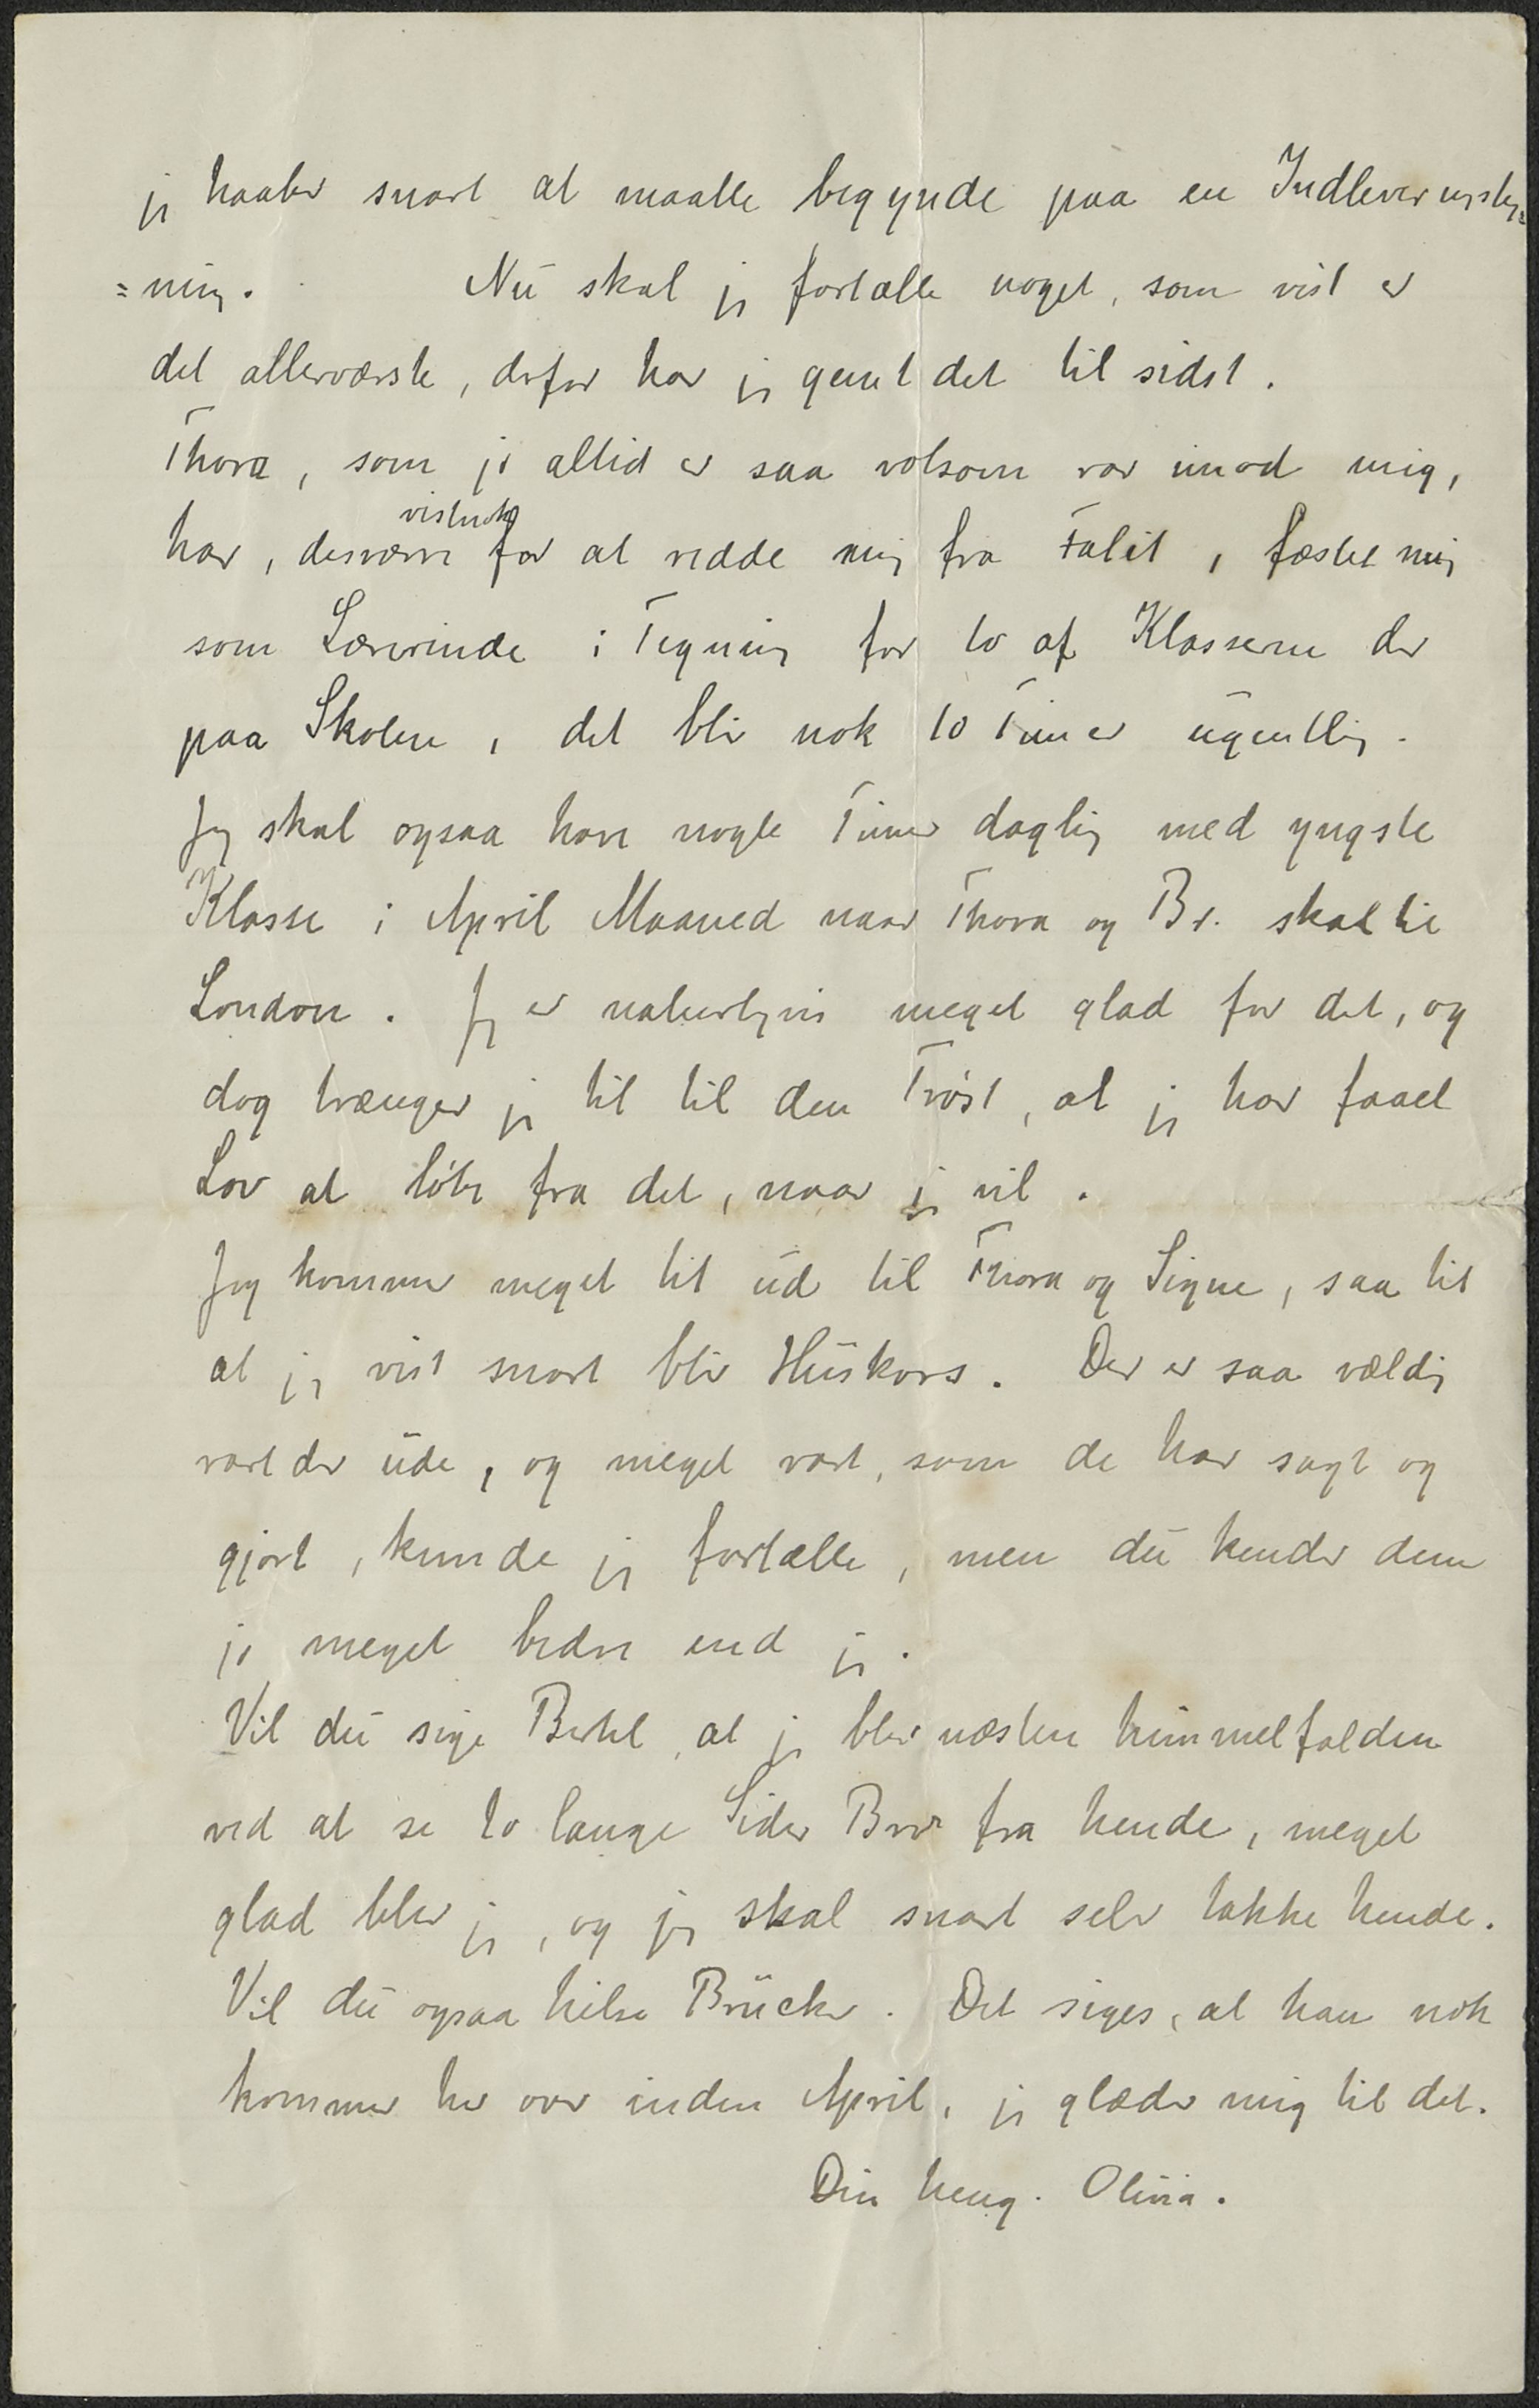 jeg haaber snart at maatte begynde paa en Indleveringsteg=
=ning. Nu skal jeg fortælle noget, som vist er
det allerværste, derfor har jeg gemt det til sidst.
Thora, som jo altid er saa voldsom rar imod mig,
har, desværre vistnok for at redde mig fra Falit, fæstet mig
som Lærerinde i Tegning for to af Klasserne der
paa Skolen, det blir nok 10 Timer ugentlig.
Jeg skal ogsaa have nogle Timer daglig med yngste
Klasse i April Maaned naar Thora og Br. skal til
London. Jeg er naturligvis meget glad for det, og
dog trænger jeg tit til den Trøst, at jeg har faaet
Lov at løbe fra det, naar jeg vil.
Jeg kommer meget tit ud til Thora og Signe, saa tit
at jeg vist snart blir Huskors. Der er saa vældig
rart der ude, og meget rart, som de har sagt og
gjort, kunde jeg fortælle, men du kender dem
jo meget bedre end jeg.
Vil du sige Bertel, at jeg blev næsten himmelfalden
ved at se to lange Sider Brev fra hende, meget
glad blev jeg, og jeg skal snart selv takke hende.
Vil du ogsaa hilse Brücker. Det siges, at han nok
kommer her over inden April, jeg glæder mig til det.
Din heng. Olivia.